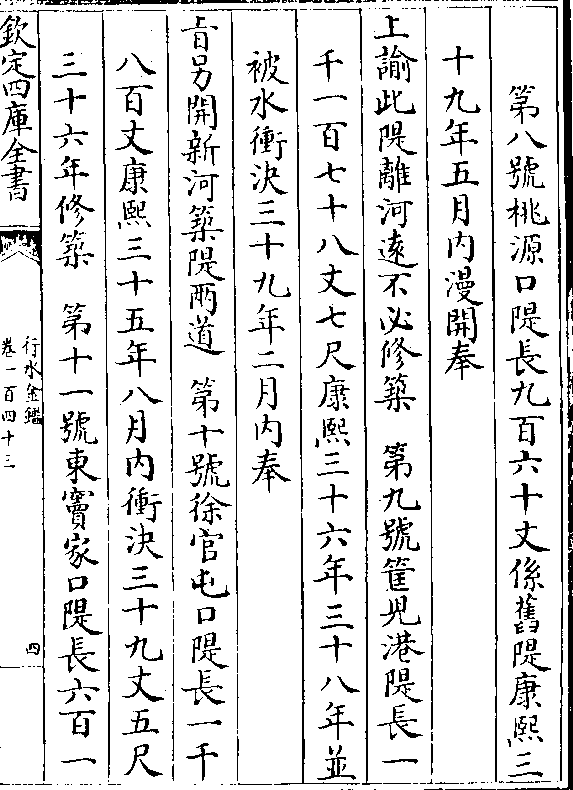 第八號桃源口隄長九百六十丈係舊隄康熙三
十九年五月内漫開奉
上諭此隄離河逺不必修築　第九號筐兒港隄長一
千一百七十八丈七尺康熙三十六年三十八年並
被水衝決三十九年二月内奉
㫖另開新河築隄兩道　第十號徐官屯口隄長一千
八百丈康熙三十五年八月内衝決三十九丈五尺
三十六年修築　第十一號東竇家口隄長六百一
欽定四庫全書
行水金鑑
卷一百四十三
四